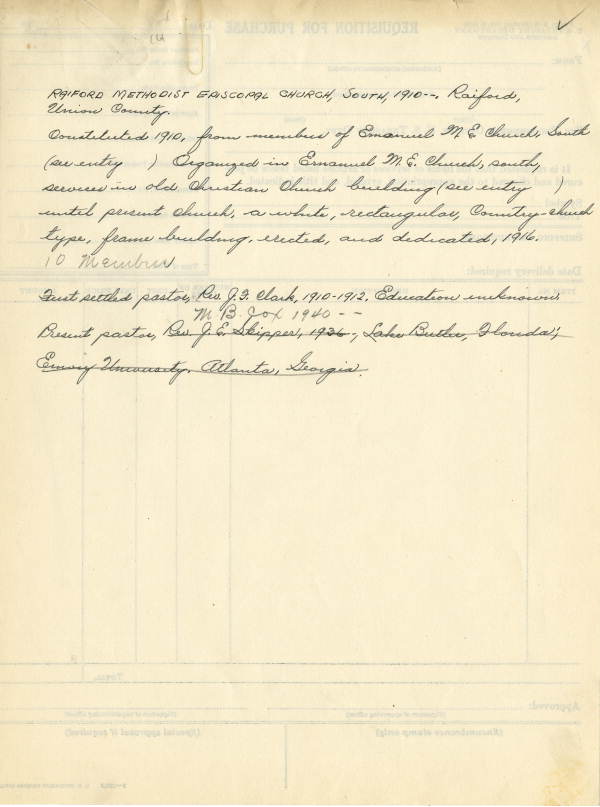 RAIFORD METHODIST EPISCOPAL CHURCH, SOUTH, 1910--. Raiford,
Union County.
Constituted 1910, from members of Emanuel M.E. Church, South
(see entry ) Organized in Emanuel M.E. Church, south,
services in old Christian Church building (see entry )
until present church, a white, rectangular, Country-church
type, frame building, erected, and dedicated, 1916.
10 Members
First settled pastor, Rev. J. F. Clark, 1910-1912, Education unknown.
M. B. Jox 1940 --
Present pastor, Rev. J. E. Skipper, 1936-, Lake Butler, Florida;
Emory University, Atlanta, Georgia.
REQUISITION FOR PURCHASE
Date delivery required:
Total
Approved:
(Signature of approving officer)
(Special approval if required)
(Encumbrance stamp only)